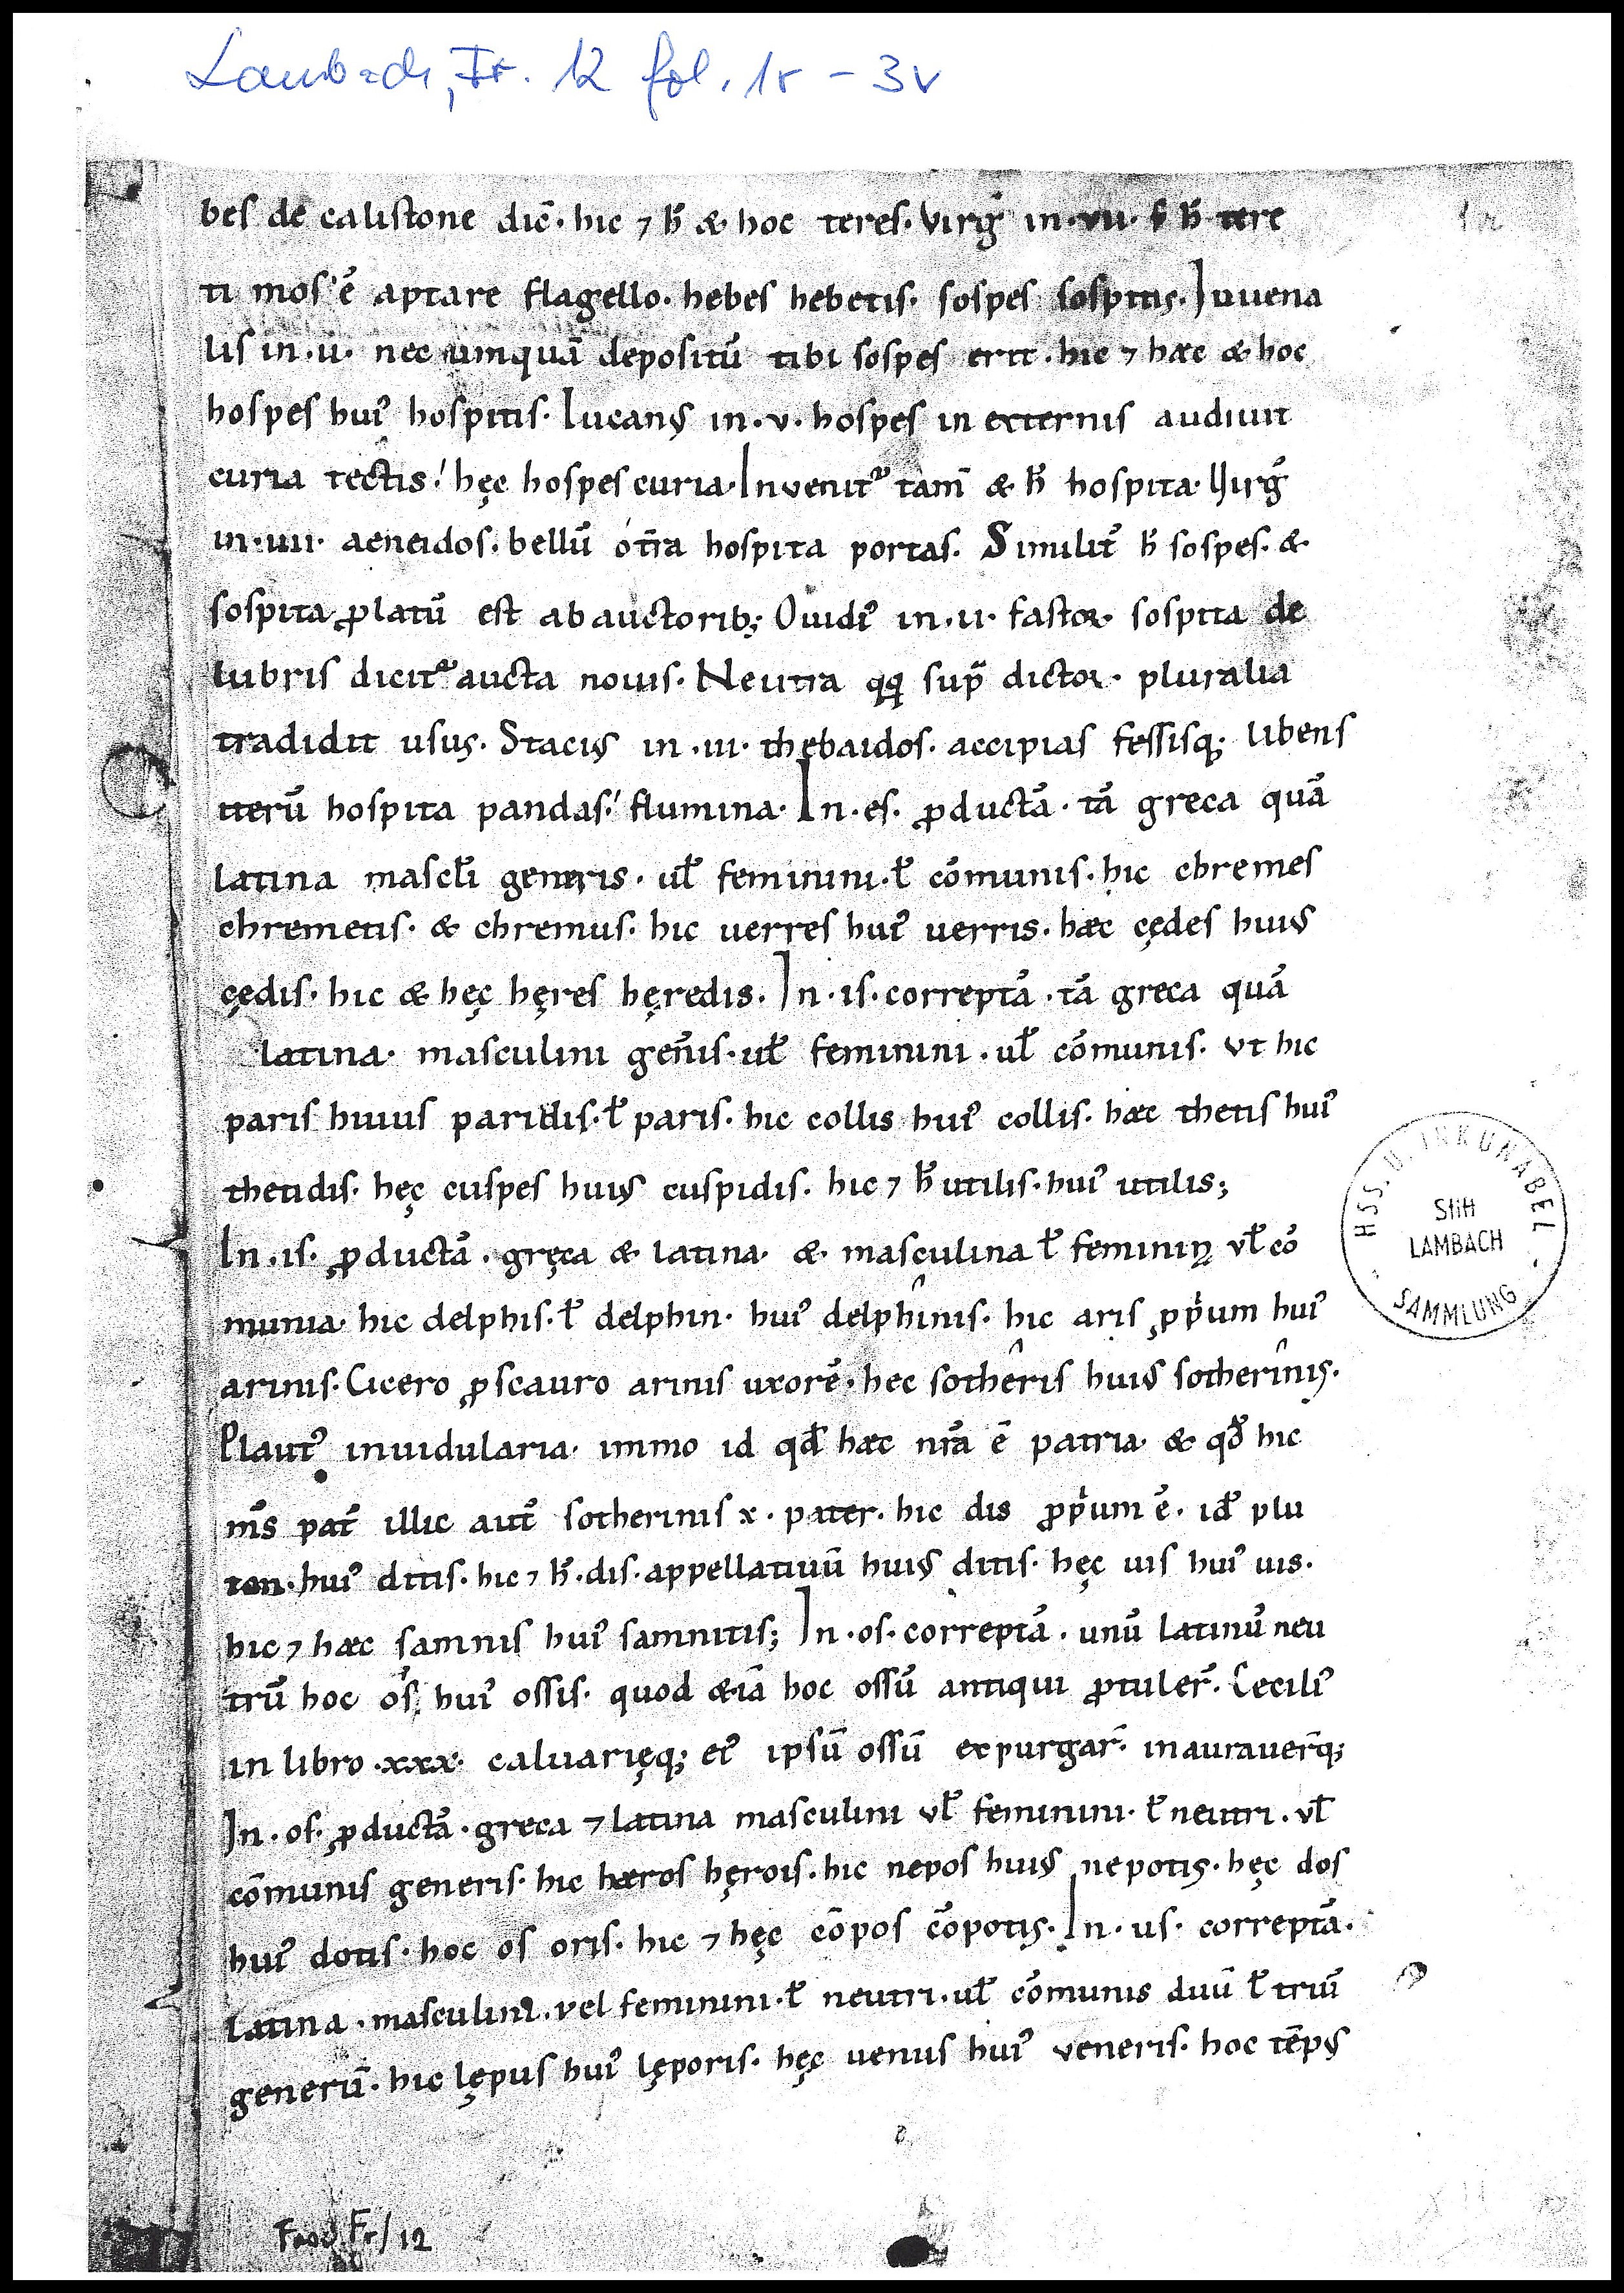 Lambach, Fr. 12 fol. 1r - 3v
bes de calistone dic̄· hic ⁊ h̄ & hoc teres· Virḡ in·vii· s; h̄ tere
ti mos ē aptare flagello· hebes hebetis· sospes sospitis· Iuuena
lis in·ii· nec umquā depositū tibi sospes erit· hic ⁊ hæc & hoc
hospes hui᾽ hospitis· Lucanꝰ in·v· hospes in externis audiuit
curia tectis! hęc hospes curia· Inuenit᾽ tam̄ & h̄ hospita· Virḡ
in·iii· aeneidos· bellū o tr̄a hospita portas· Similit̄ h̄ sospes· &
sospita ꝓlatū est ab auctorib; Ouidi᾽ in·ii· fastoꝝ· sospita de
lubris dicit᾽ aucta nouis· Neutra qq; sup̄ dictoꝝ· pluralia
tradidit usus· Staciꝰ in·iii· thebaidos· accipias fessisq; libens
iterū hospita pandas! flumina· In·es· ꝓductā· tā greca quā
latina mascl̄i generis· ul̄ feminini· ł cōmunis· hic chremes
chremetis· & chremus· hic uerres hui᾽ uerris· hæc çędes huiꝰ
çędis· hic & hęc hęres hęredis· In·is· correptā· tā greca quā
latina· masculini gen̄is· ul̄ feminini· ul̄ cōmunis· vt hic
paris huius paridis· ł paris· hic collis hui᾽ collis· hæc thetis hui᾽
thetidis· hęc cuspes huiꝰ cuspidis· hic ⁊ h̄ utilis· hui᾽ utilis;
HSS. U. INKUNABEL
Stift
LAMBACH
SAMMLUNG
In·is· ꝓductā· gręca & latina· & masculina ł feminina vl̄ cō
munia· hic delphis· ł delphin· hui᾽ delphînis· hic aris ꝓp̄um hui᾽
arinis· Cicero ꝓ scauro arinis uxorē· hec sotheris huiꝰ sotherinis·
Plaut᾽ in uidularia· immo id qd̄ hæc nr̄a ē patria· & qd̄ hic
m̄s pat̄ illic aut̄ sotherinis x· pater· hic dis ꝓp̄um ē· id̄ plu
ton· hui᾽ ditis· hic ⁊ h̄·dis· appellatiuū huiꝰ ditis· hęc uis hui᾽ uis·
hic ⁊ hæc samnis hui᾽ samnitis; In·os· correptā· unū latinū neu
trū hoc os, hui᾽ ossis· quod &iā hoc ossū antiqui ꝓtuler̄· Cecili᾽
in libro·xxx· caluarięq; ei᾽ ipsū ossū expurgar̄· inaurauer̄q;
In·os· ꝓductā· greca ⁊ latina masculini vl̄ feminini· ł neutri· vl̄
cōmunis generis· hic hæros hęrois· hic nepos huiꝰ nepotis· hęc dos
hui᾽ dotis· hoc os oris· hic ⁊ hęc cōpos cōpotis· In·us· correptā·
latina· masculini· vel feminini· ł neutri· ul̄ cōmunis duū ł triū
generū· hic lępus hui᾽ lęporis· hęc uenus hui᾽ veneris· hoc tēpꝰ
Fr/12
XII